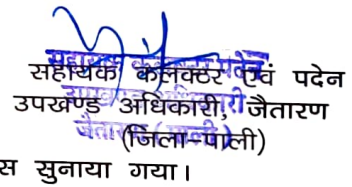 सहायक कलेक्टर एवं पदेन
उपखण्ड अधिकारी, जैतारण
(जिला-पाली)
स सुनाया गया।